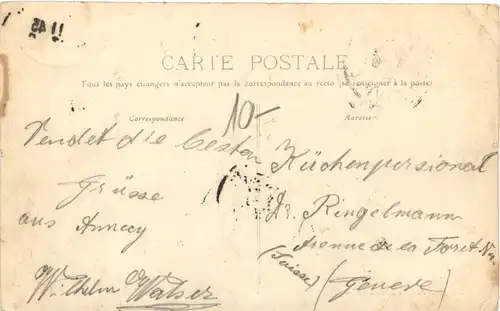 CARTE POSTALE
Tous les pays étrangers n'acceptent pas la correspondance au recto (se renseigner à la poste)
Correspondance
Adresse
10-
Sendet die besten
Grüsse
aus Annecy
Wilhelm Walser
Küchenpersional
Dr. Ringelmann
Avenue de la Foret
(Suisse)
(Geneve)